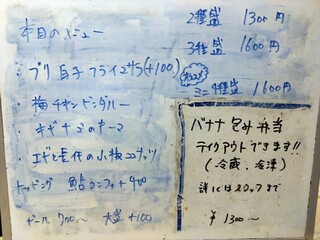 本日のメニュー
・ブリ白子フライ2ヶ(+100)
・梅チキンビンダルー
・キーマ
・エビと
トッピング 鮎コンフィ +400
ビール 700〜 大盛 +100
2種盛 1300円
3種盛 1600円
ミニ4種盛 1600円
バナナ包み弁当
テイクアウトできます!!
(冷蔵・冷凍)
詳しくはスタッフまで
¥1300〜